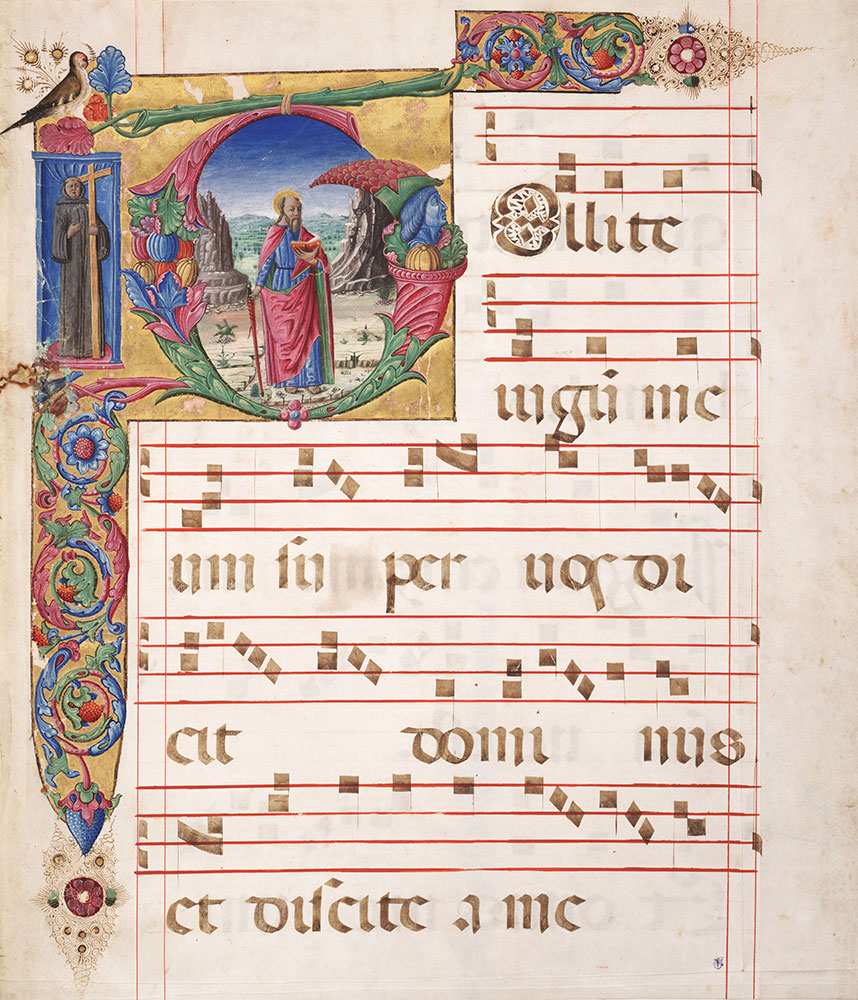 TOllite
iugu me
um su per uos di
cit domi nus
et discite a me